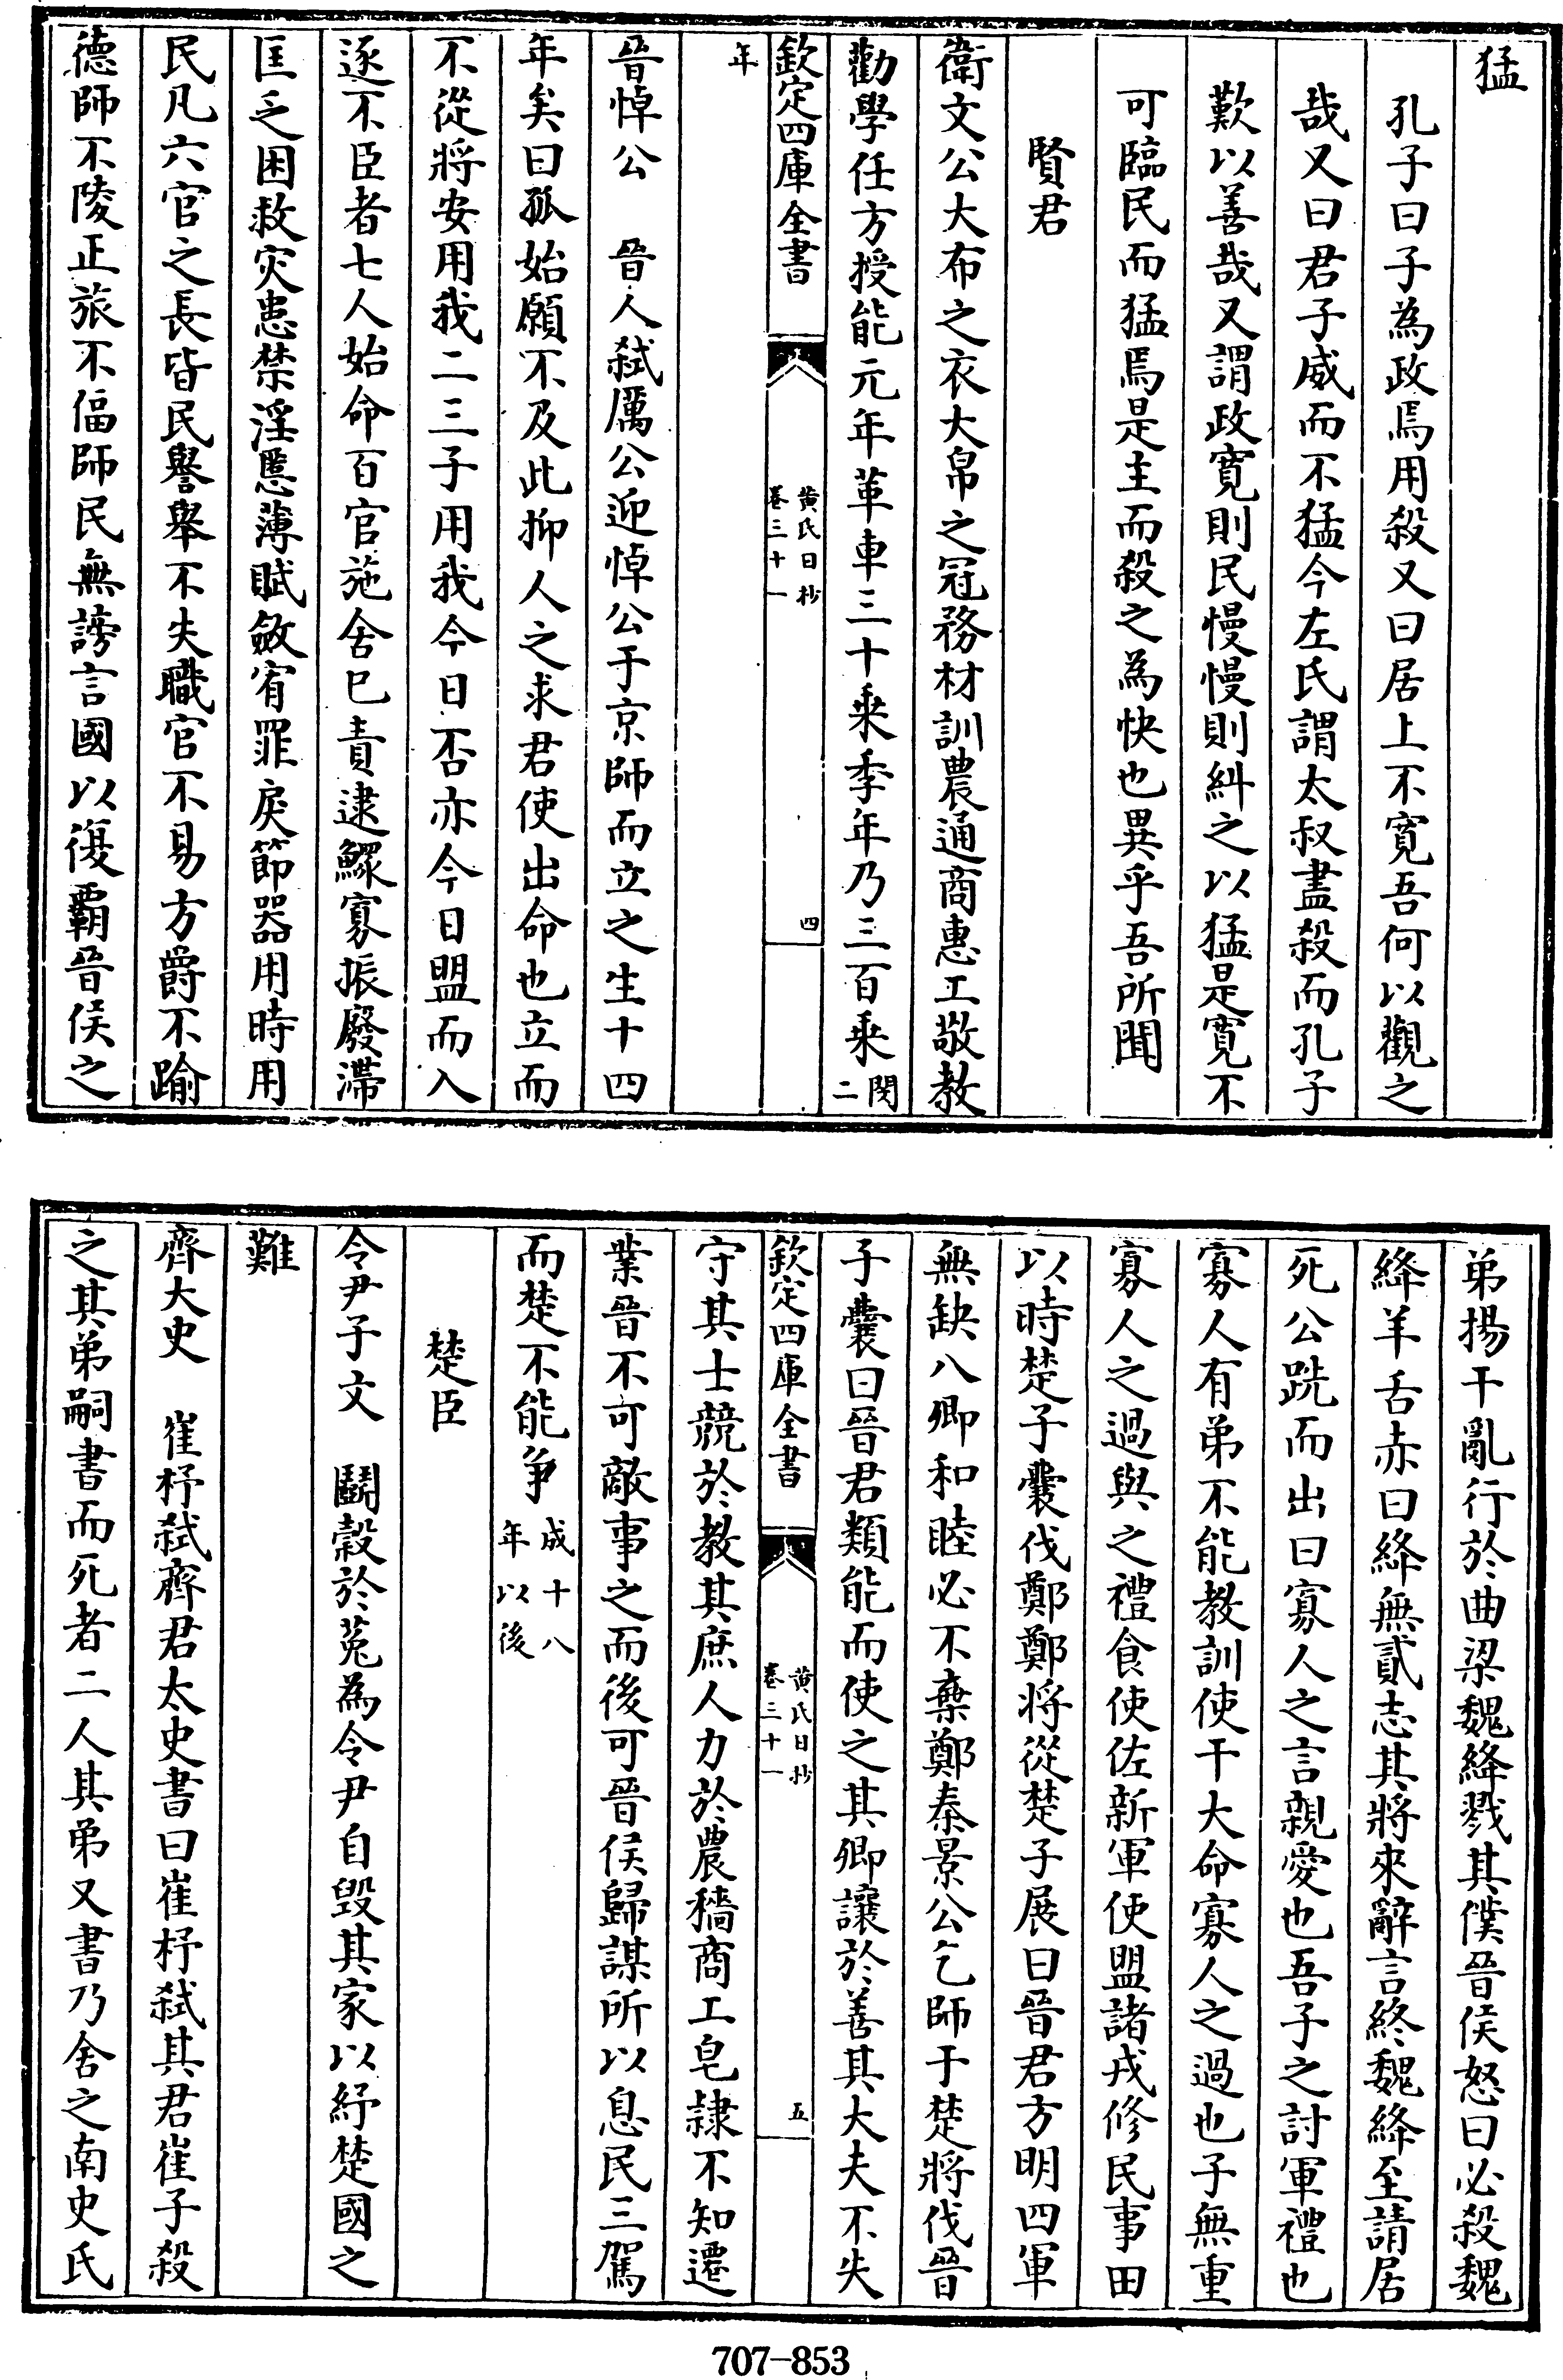 猛
孔子曰子為政焉用殺又曰居上不寛吾何以觀之
哉又曰君子威而不猛今左氏謂太叔盡殺而孔子
歎以善哉又謂政寛則民慢慢則糾之以猛是寛不
可臨民而猛焉是主而殺之為快也異乎吾所聞
賢君
衛文公大布之衣大帛之冠務材訓農通商惠工敬教
勸學任方授能元年革車三十乗季年乃三百乗閔二
欽定四庫全書
黄氏日抄
卷三十一
四
年
晉悼公　晉人弑厲公迎悼公于京師而立之生十四
年矣曰孤始願不及此抑人之求君使出命也立而
不從將安用我二三子用我今日否亦今日盟而入
逐不臣者七人始命百官施舍已責逮鰥寡振廢滯
匡乏困救灾患禁淫慝薄賦斂宥罪戾節器用時用
民凡六官之長皆民譽舉不失職官不易方爵不踰
德師不陵正旅不偪師民無謗言國以復覇晉侯之
弟揚干亂行於曲梁魏絳戮其僕晉侯怒曰必殺魏
絳羊舌赤曰絳無貳志其將來辭言終魏絳至請居
死公跣而出曰寡人之言親愛也吾子之討軍禮也
寡人有弟不能教訓使干大命寡人之過也子無重
寡人之過與之禮食使佐新軍使盟諸戎修民事田
以時楚子囊伐鄭鄭將從楚子展曰晉君方明四軍
無缺八卿和睦必不棄鄭秦景公乞師于楚將伐晉
子囊曰晉君類能而使之其卿讓於善其大夫不失
欽定四庫全書
黄氏日抄
卷三十一
五
守其士競於教其庶人力於農穡商工皂隷不知遷
業晉不可敵事之而後可晉侯歸謀所以息民三駕
而楚不能争成十八年以後
楚臣
令尹子文　鬭穀於菟為令尹自毁其家以紓楚國之
難
齊大史　崔杼弑齊君太史書曰崔杼弑其君崔子殺
之其弟嗣書而死者二人其弟又書乃舍之南史氏
707-853